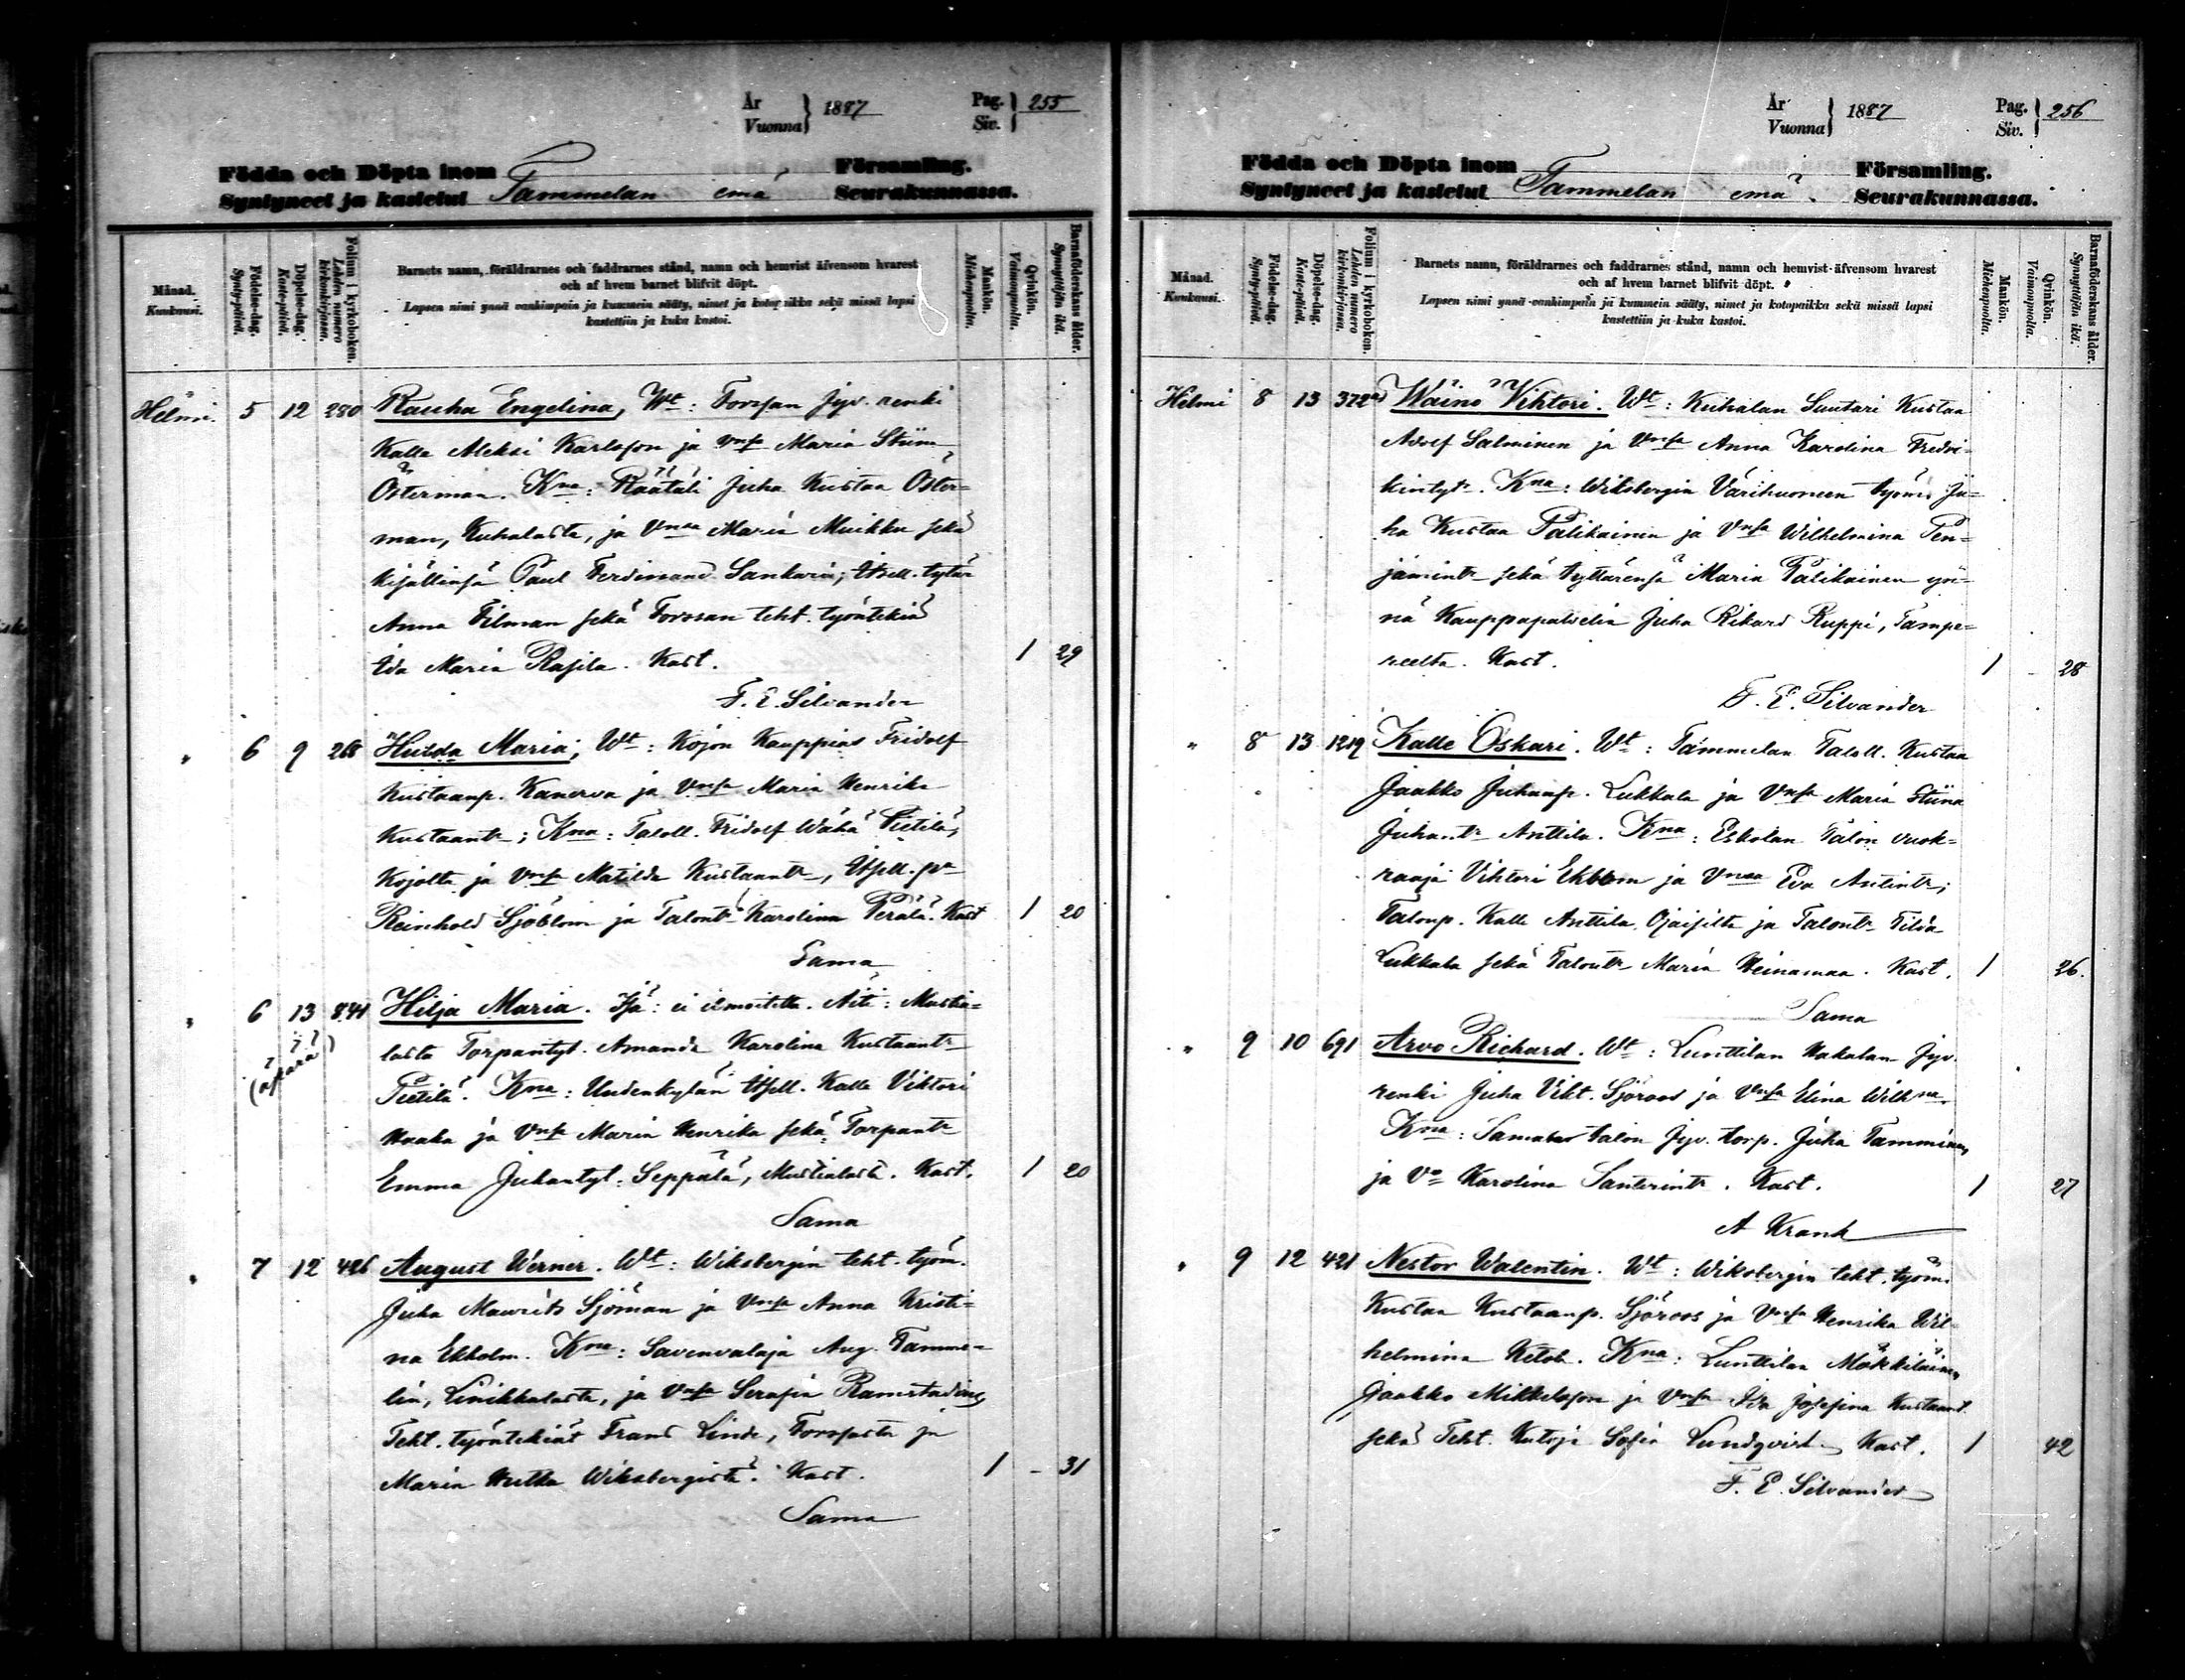 År
Vuonna } 1887
Pag.
Siv. } 255
Födda och Döpta inom Församling.
Syntyneet ja kastetut Tammelan emä Seurakunnassa.
Månad. Kuukausi.
Födelse-dag. Synty-päivä.
Döpelse-dag. Kaste-päivä.
Folium i kyrkoboken. Lehden numero kirkonkirjassa.
Barnets namn, föräldrarnes och faddrarnes stånd, namn och hemvist äfvensom hvarest
och af hvem barnet blifvit döpt.
Lapsen nimi ynnä vanhimpain ja kummein sääty, nimet ja kotopaikka sekä missä lapsi
kastettiin ja kuka kastoi.
Mankön. Miehenpuolta.
Qvinkön. Vaimonpuolta.
Barnaföderskans ålder. Synnyttäjän ikä.
Helmi. 5 12 280 Rauha Engelina, Wt: Forssan Jyv. renki
Kalle Aleksi Karlsson ja vnsa Maria Stiina
Österman. Kna: Räätäli Juha Kustaa Öster-
man, Kuhalasta, ja Vnsa Maria Muikku sekä
kisällinsä Paul Ferdinand Sankari; Itsell. tytär
Anna Filman sekä Forssan teht. työntekiä
Ida Maria Rajila. Kast. 1 29
F. E. Silvander
" 6 9 268 Hulda Maria; Wt: Kojon Kauppias Fridolf
Kustaanp. Kanerva ja Vnsa Maria Henrika
Kustaantr; Kna: Taloll. Fridolf Wähä Pietilä,
Kojolta ja Vnsa Matilda Kustaantr, Itsell. pa
Reinhold Sjöblom ja Talontr Karolina Perälä. Kast 1 20
Sama
" 6 13 841 Hilja Maria. Isä: ei ilmoitettu. Äiti: Mustia-
(äpärä)
lasta Torpantyt. Amanda Karolina Kustaantr
Pietilä. Kna: Uudenkylän Itsell. Kalle Viktori
Haaka ja Vnsa Maria Henrika sekä Torpantr
Emma Juhantyt. Seppälä, Mustialasta. Kast. 1 20
Sama
" 7 12 426 August Werner. Wt: Wiksbergin teht. työm.
Juha Maurits Sjöman ja Vnsa Anna Kristi-
na Ekholm. Kna: Savenvalaja Aug. Tamme-
lin, Linikkalasta, ja Vnsa Serafia Ramstadius,
Teht. työntekiät Frans Linde, Forssasta ja
Maria Hutka Wiksbergistä. Kast. 1 - 31
Sama
År
Vuonna } 1887
Pag.
Siv. } 256
Födda och Döpta inom Församling.
Syntyneet ja kastetut Tammelan emä. Seurakunnassa.
Månad. Kuukausi.
Födelse-dag. Synty-päivä.
Döpelse-dag. Kaste-päivä.
Folium i kyrkoboken. Lehden numero kirkonkirjassa.
Barnets namn, föräldrarnes och faddrarnes stånd, namn och hemvist äfvensom hvarest
och af hvem barnet blifvit döpt.
Lapsen nimi ynnä vanhimpain ja kummein sääty, nimet ja kotopaikka sekä missä lapsi
kastettiin ja kuka kastoi.
Mankön. Miehenpuolta.
Qvinkön. Vaimonpuolta.
Barnaföderskans ålder. Synnyttäjän ikä.
Helmi 8 13 372 Wäinö Vihtori. Wt: Kuhalan Suutari Kustaa
Adolf Salminen ja Vnsa Anna Karolina Fredri-
kintyt. Kna: Wiksbergin Värihuoneen työm. Ju-
ha Kustaa Palikainen ja Vnsa Wilhelmina Pen-
jämintr sekä tyttärensä Maria Palikainen yn-
nä Kauppapalvelia Juha Rikard Ruppi, Tampe-
reelta. Kast. 1 - 28
F. E. Silvander
" 8 13 1219 Kalle Oskari. Wt: Tammelan Taloll. Kustaa
Jaakko Juhanp. Lukkala ja Vnsa Maria Stiina
Juhantr Anttila. Kna: Eskolan Talon vuok-
raaja Vihtori Ekblom ja Vnsa Eva Antintr;
Talonp. Kalle Anttila Ojaisilta ja Talontr Tilda
Lukkala sekä Talontr Maria Heinämaa. Kast. 1 26.
Sama
" 9 10 691 Arvo Richard. Wt: Lunttilan Hakalan Jyv.
renki Juha Vikt. Sjöroos ja Vnsa Elina Wilhna.
Kna: talon Jyv. torp. Juha Tamminen,
ja Vo Karolina Santerintr. Kast. 1 27
A Krank
" 9 12 421 Nestor Walentin. Wt: Wiksbergin teht. työm.
Kustaa Kustaanp. Sjöroos ja Vnsa Henrika Wil-
helmina Ketola. Kna: Lunttilan Mäkkiläinen
Jaakko Mikkelsson ja Vnsa Ida Josefina Kustaant.
sekä Teht. Kutoja Sofia Lundqvist. Kast. 1 42
F. E. Silvander